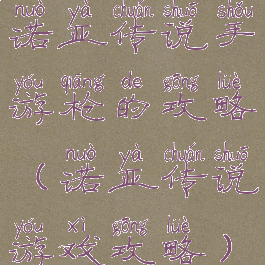 nuò yà chuán shuō shǒu
诺亚传说手
yóu qiāng de gōng lüè
游枪的攻略
nuò yà chuán shuō
（诺亚传说
yóu xì gōng lüè
游戏攻略）